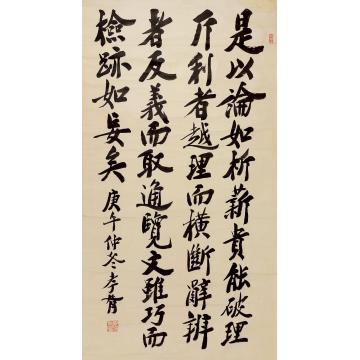 是以論如析薪貴能破理
斤利者越理而橫斷辭辨
者反義而取通覽文雖巧而
檢跡如妄矣 庚午仲冬孝胥